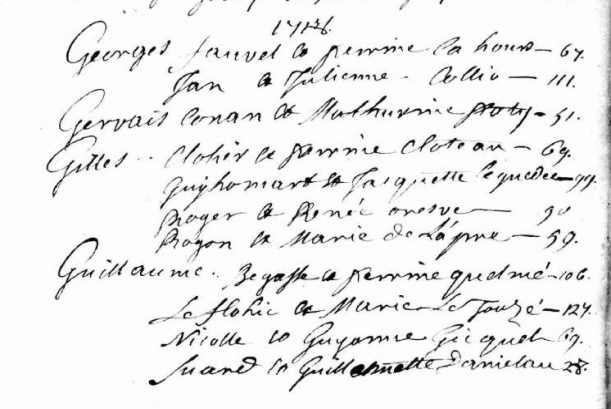 Georges fauvel & perrine la houx — 67.
Jan & Julienne - Collio — 111.
Gervais Conan & Mathurine — 51.
Gilles .. Clohir & perrine Cloteau — 69.
Guyhomart & Jacquette le — 99.
Roger & Renée — 90
Rogon & Marie de — 59.
Guillaume . Begasse & perrine quelmé - 106.
Le flohic & Marie Le Touzé — 127.
Nicolle & Guyonne Gicquel 69.
Suard & Guillemette Danielau 28.